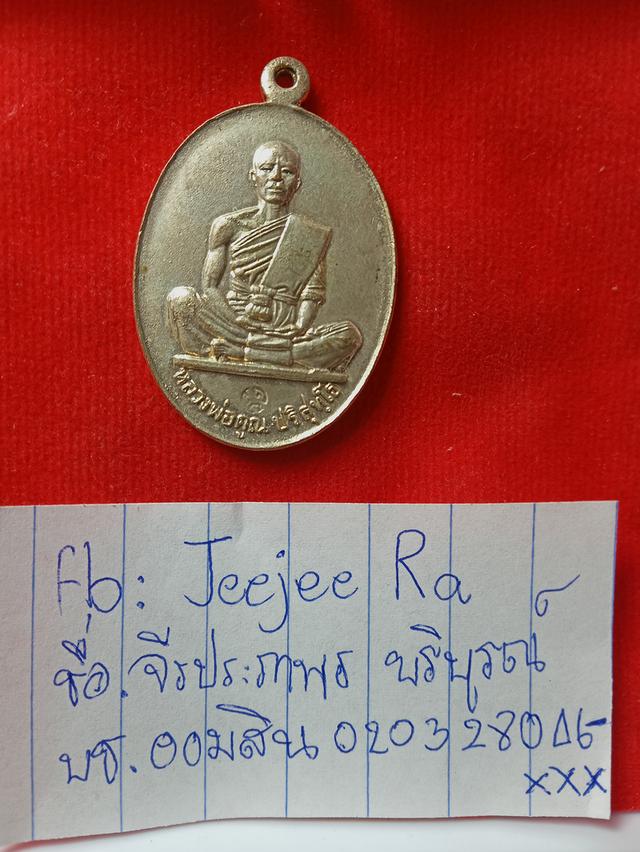 หลวงพ่อคูณ ปริสุทฺโธ
fb: Jeejee Ra
ชื่อ. จีรประภาพร บริบูรณ์
บช. ออมสิน 0203280
xxx